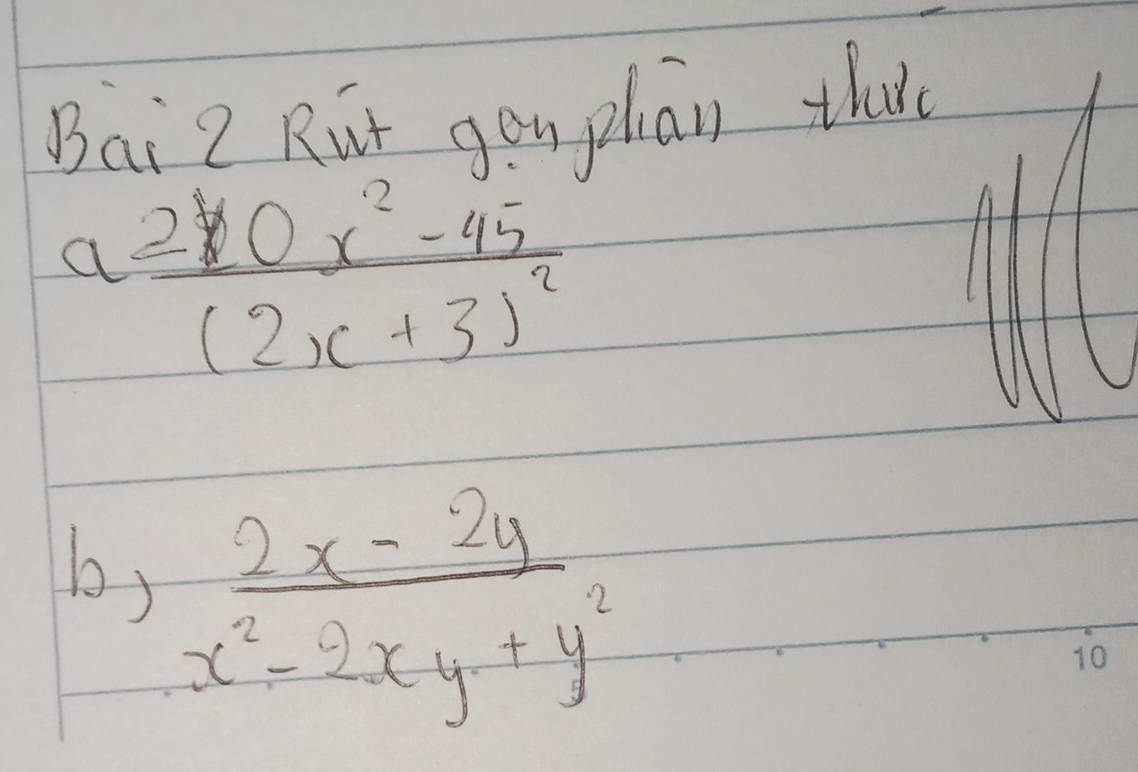 Bài 2 Rút gọn phân thức
a 20x² - 45
(2x + 3)²
b, 2x - 2y
x² - 2xy + y²
10